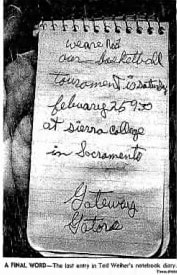 we are Red
our basketball
tournament is saturday
february 25 9:00
at sierra college
in Sacramento
Gateway
Gators
A FINAL WORD—The last entry in Ted Weiher's notebook diary.